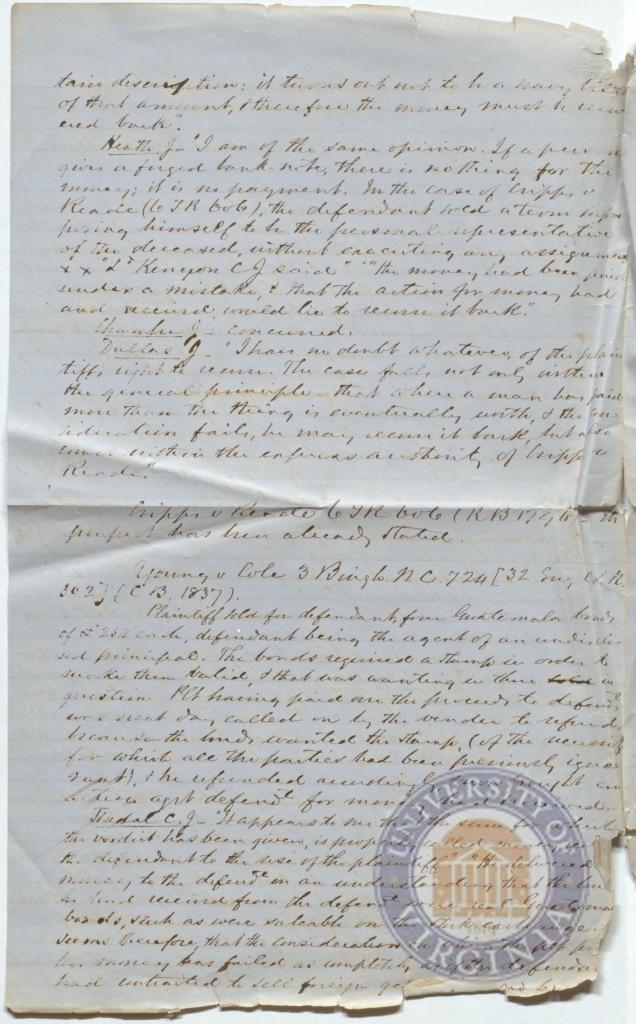 tain description: it turns out not to be a navy bill
of that amount, & therefore the money must be recov
ered back".
Heath J - "I am of the same opinion. If a person
gives a forged bank-note, there is nothing for the
money; it is no payment. In the case of Cripps v
Reade (6 T R 606), the defendant sold a term sup
posing himself to be the personal representative
of the deceased, without executing any assignment
x x "Ld Kenyon C J said" "the money had been paid
under a mistake, & that the action for money had
and received would lie to recover it back".
Chambre J - concurred.
Dallas J - "I have no doubt whatever, of the plain
tiff's right to recover. The case falls not only within
the general principle that where a man has paid
more than the thing is eventually worth, & the con
sideration fails, he may recover it back, but also
comes within the express authority of Cripps v
Reade".
Cripps v Reade 6 T R 606 (K B 1796) - 
purport has been already stated.
Young v Cole 3 Bingh. N.C. 724 [32 Eng C L R
302] (C B, 1837).
Plaintiff sold for defendant, four Guatemala bonds
of £252 each, defendant being the agent of an undisclo
sed principal. The bonds required a stamp in order to
make them valid, & that was wanting in those in
question. Plt having paid over the proceeds to defendt
was next day called on by the vendee to refund
because the bonds wanted the stamp, (of the necessity
for which all the parties had been previously igno
rant), & he refunded accordingly & then brought an
action agst defendt for money had & received
Tindal C. J - "It appears to me that the sum for which
the verdict has been given, is properly called money
the defendant to the use of the plaintiff." "He delivered
money to the defendt on an understanding that the bonds
he had received from the defendt were real Guatemala
bonds, such as were saleable on the Stock exchange. It
seems therefore, that the consideration on which the plt
his money has failed as completely as if the defendant
had contracted to sell foreign
UNIVERSITY OF VIRGINIA LAW